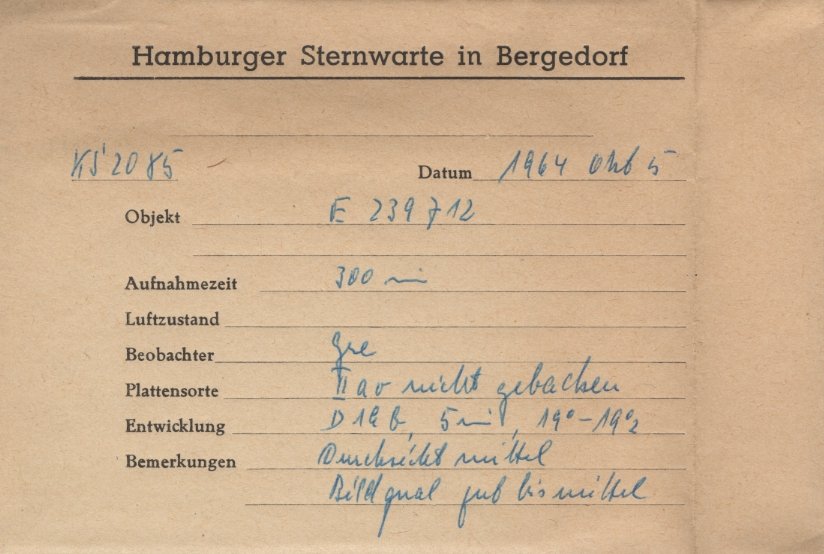 Hamburger Sternwarte in Bergedorf
KS 2085 Datum 1964 Okt 5
Objekt E 239712
Aufnahmezeit 300 min
Luftzustand
Beobachter
Plattensorte II a o nicht gebacken
Entwicklung D19b, 5 min, 19°-19°2
Bemerkungen Durchsicht mittel
Bildqual gut bis mittel